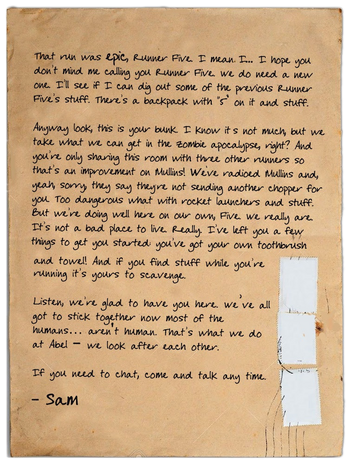 That run was epic, Runner Five. I mean. I... I hope you
don't mind me calling you Runner Five. we do need a new
one. I'll see if I can dig out some of the previous Runner
Five's stuff. There's a backpack with "5" on it and stuff.
Anyway look, this is your bunk. I know it's not much, but we
take what we can get in the zombie apocalypse, right? And
you're only sharing this room with three other runners so
that's an improvement on Mullins! We've radioed Mullins and,
yeah, sorry, they say they're not sending another chopper for
you. Too dangerous what with rocket launchers and stuff.
But we're doing well here on our own, Five. we really are.
It's not a bad place to live. Really. I've left you a few
things to get you started: you've got your own toothbrush
and towel! And if you find stuff while you're
running it's yours to scavenge.
Listen, we're glad to have you here. we've all
got to stick together now most of the
humans... aren't human. That's what we do
at Abel – we look after each other.
If you need to chat, come and talk any time.
– Sam